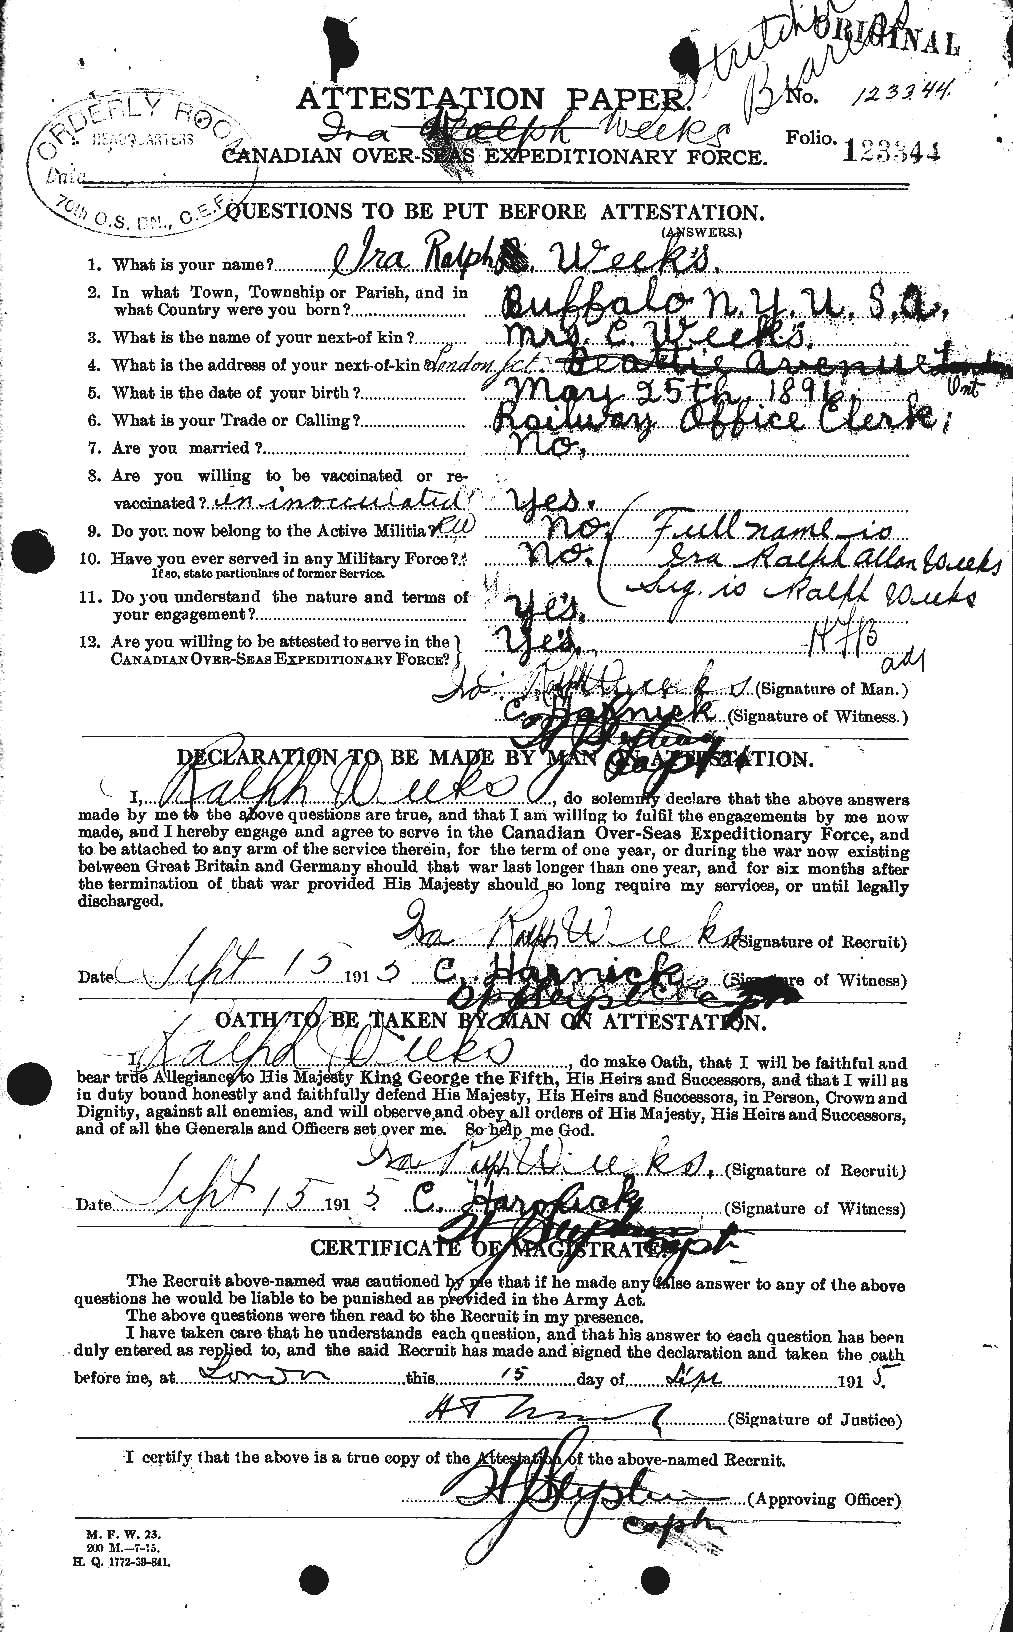 Stretcher
Bearers
ORIGINAL
ATTESTATION PAPER.
No. 123344.
Ira Ralph Weeks
Folio. 123344
CANADIAN OVER-SEAS EXPEDITIONARY FORCE.
ORDERLY ROOM
HEADQUARTERS
Date
70th O.S. BN., C.E.F.
QUESTIONS TO BE PUT BEFORE ATTESTATION.
(ANSWERS.)
1. What is your name? Ira Ralph Weeks.
2. In what Town, Township or Parish, and in
what Country were you born? Buffalo N.Y. U.S.A.
3. What is the name of your next-of kin? Mrs. C. Weeks.
4. What is the address of your next-of-kin? London Jct. Beattie Avenue London
Ont
5. What is the date of your birth? May 25th, 1891.
6. What is your Trade or Calling? Railway Office Clerk;
7. Are you married? No.
8. Are you willing to be vaccinated or re-
vaccinated? or inocculated Yes.
9. Do you now belong to the Active Militia? RW No. Full name is
10. Have you ever served in any Military Force? No. Ira Ralph Allan Weeks
If so, state particulars of former Service.
Sig. is Ralph Weeks
11. Do you understand the nature and terms of
your engagement? Yes.
12. Are you willing to be attested to serve in the
CANADIAN OVER-SEAS EXPEDITIONARY FORCE? Yes.
adj
Ira Ralph Weeks (Signature of Man.)
C. Harnick (Signature of Witness.)
Capt
DECLARATION TO BE MADE BY MAN ON ATTESTATION.
I, Ralph Weeks, do solemnly declare that the above answers
made by me to the above questions are true, and that I am willing to fulfil the engagements by me now
made, and I hereby engage and agree to serve in the Canadian Over-Seas Expeditionary Force, and
to be attached to any arm of the service therein, for the term of one year, or during the war now existing
between Great Britain and Germany should that war last longer than one year, and for six months after
the termination of that war provided His Majesty should so long require my services, or until legally
discharged.
Ira Ralph Weeks (Signature of Recruit)
Date Sept 15 1915 C. Harnick (Signature of Witness)
OATH TO BE TAKEN BY MAN ON ATTESTATION.
I, Ralph Weeks, do make Oath, that I will be faithful and
bear true Allegiance to His Majesty King George the Fifth, His Heirs and Successors, and that I will as
in duty bound honestly and faithfully defend His Majesty, His Heirs and Successors, in Person, Crown and
Dignity, against all enemies, and will observe and obey all orders of His Majesty, His Heirs and Successors,
and of all the Generals and Officers set over me. So help me God.
Ira Ralph Weeks. (Signature of Recruit)
Date Sept 15 1915 C. Harnick (Signature of Witness)
Capt
CERTIFICATE OF MAGISTRATE.
The Recruit above-named was cautioned by me that if he made any false answer to any of the above
questions he would be liable to be punished as provided in the Army Act.
The above questions were then read to the Recruit in my presence.
I have taken care that he understands each question, and that his answer to each question has been
duly entered as replied to, and the said Recruit has made and signed the declaration and taken the oath
before me, at London this 15 day of Sept 1915.
(Signature of Justice)
I certify that the above is a true copy of the Attestation of the above-named Recruit.
(Approving Officer)
Capt
M. F. W. 23.
200 M.—7-15.
H. Q. 1772-39-841.